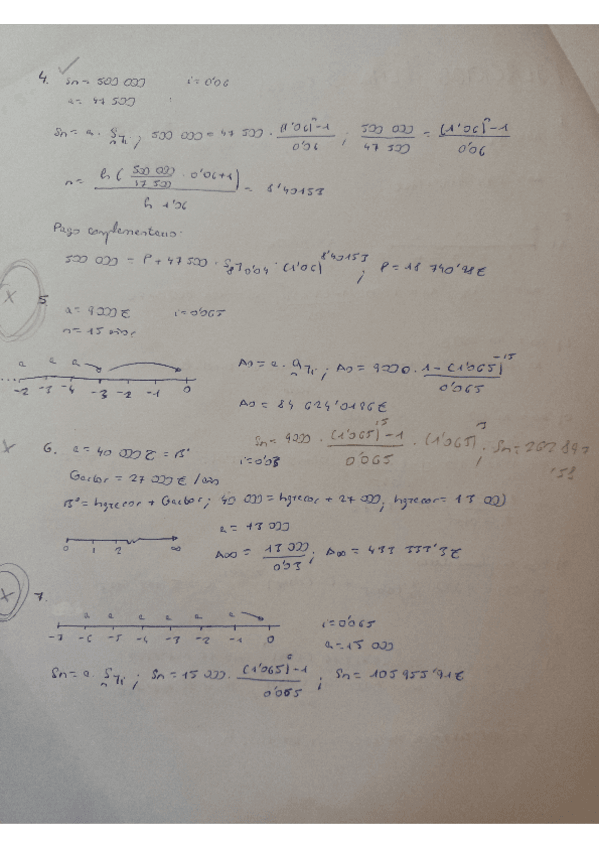 4. Sn = 500 000 i = 0'06
a = 47 500
Sn = a · S n⌉i ; 500 000 = 47 500 · (1'06)^n - 1 / 0'06 ; 500 000 / 47 500 = (1'06)^n - 1 / 0'06
n = ln ( 500 000 / 47 500 · 0'06 + 1 ) / ln 1'06 = 8'40153
Pago complementario:
500 000 = P + 47 500 · S 8⌉0,04 · (1'06)^8'40153 ; P = 18 740'98€
5. a = 9000€ i = 0'065
n = 15 años
a a a
... -2 -3 -4 -3 -2 -1 0
A0 = a · a n⌉i ; A0 = 9000 · 1 - (1'065)^-15 / 0'065
A0 = 84 624'0186€
Sn = 9000 · (1'065)^15 - 1 / 0'065 · (1'065)^3 ; Sn = 262 890
'58
6. a = 40 000 € = Bº i = 0'03
Gastos = 27 000 € / año
Bº = Ingresos + Gastos ; 40 000 = Ingresos + 27 000 ; Ingresos = 13 000
0 1 2 ∞
a = 13 000
A∞ = 13 000 / 0'03 ; A∞ = 433 333,3€
7.
a a a a a a
-7 -6 -5 -4 -3 -2 -1 0
i = 0'065
a = 15 000
Sn = a · S n⌉i ; Sn = 15 000 · (1'065)^6 - 1 / 0'065 ; Sn = 105 955'91€